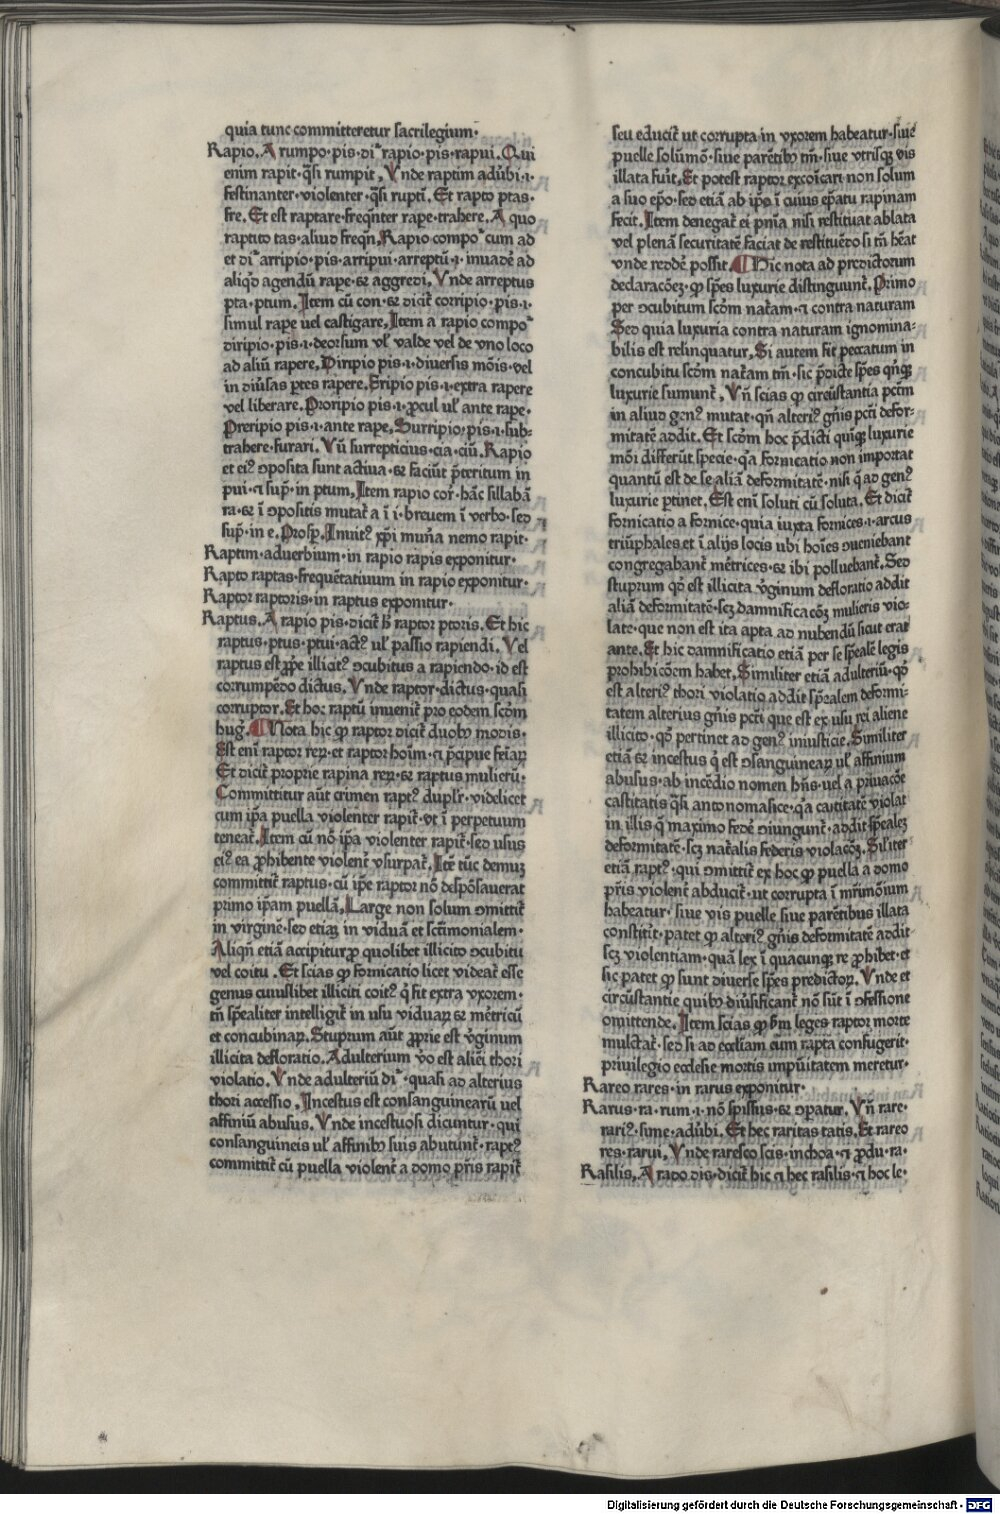 quia tunc committeretur sacrilegium·
Rapio. A rumpo·pis·di͛ rapio·pis·rapui. Qui
enim rapit·q̄si rumpit. Vnde raptim adv̄bi·i·
festinanter·violenter·q̄si ruptī. Et rapto ptas·
fre. Et est raptare·freq̄nter rape·trahere. A quo
raptito tas·aliud freq̄n. Rapio compoᵒ cum ad
et di͛ arripio·pis·arripui·arreptū·i·inuadē ad
aliqd̄ agendū rape·⁊ aggredi. Vnde arreptus
pta·ptum. Item cū con·⁊ dicit̄ corripio·pis·i·
simul rape uel castigare. Item a rapio compoᵒ
diripio·pis·i·deorsum vl̄ valde vel de vno loco
ad aliū rapere. Diripio pis·i·diuersis mōis·vel
in diūsas ptes rapere. Eripio pis·i·extra rapere
vel liberare. Proripio pis·i·ꝓcul ul̄ ante rape·
Preripio pis·i·ante rape. Surripio·pis·i·sub-
trahere·furari. Vn̄ surrepticius·cia·ciū. Rapio
et eiꝰ ↄposita sunt actiua·⁊ faciūt p̄teritum in
pui·⁊ sup̄·in ptum. Item rapio cor̄·hāc sillabā
ra·⁊ ī ↄpositis mutat̄ a ī i·breuem ī verbo·sed
sup̄·in e. Prosp̄. Inuitꝰ xp̄i mun̄a nemo rapit·
Raptim·aduerbium·in rapio rapis exponitur·
Rapto raptas·frequētatiuum in rapio exponitur·
Raptor raptoris·in raptus exponitur·
Raptus. A rapio pis·dicit̄ h̄ raptor ptoris. Et hic
raptus·ptus·ptui·actꝰ ul̄ passio rapiendi. Vel
raptus est ꝓp̄e illicitꝰ ↄcubitus a rapiendo·id est
corrumpēdo dictus. Vnde raptor·dictus·quasi
corruptor. Et hoc raptū inuenit̄ pro eodem scd̄m
huḡ. Nota hic ꝙ raptor dicit̄ duobꝰ modis·
Est enī raptor reꝝ·et raptor hoīm·⁊ p̄cipue fēiaꝝ
Et dicit̄ proprie rapina reꝝ·⁊ raptus mulierū·
Committitur aūt crimen raptꝰ duplr̄·videlicet
cum ip̄a puella violenter rapit̄·vt ī perpetuum
teneat̄. Item cū nō ip̄a violenter rapit̄·sed usus
eiꝰ ea ꝓhibente violent̄ vsurpat̄. Itē tūc demuꝫ
committit̄ raptus·cū ip̄e raptor nō despōsauerat
primo ip̄am puellā. Large non solum ↄmittit̄
in virginē·sed etiaꝫ in viduā et sc̄timonialem·
Aliqn̄ etiā accipitur ꝓ quolibet illicito ↄcubitu
vel coitu. Et scias ꝙ fornicatio licet videat̄ esse
genus cuiuslibet illiciti coitꝰ q̄ fit extra vxorem·
tn̄ sp̄ealiter intelligit̄ in usu viduaꝝ ⁊ mētricū
et concubinaꝝ. Stuprum aūt ꝓprie est v̄ginum
illicita defloratio. Adulterium v̄o est alieī thori
violatio. Vnde adulteriū di͛·quasi ad alterius
thori accessio. Incestus est consanguinearū uel
affiniū abusus. Vnde incestuosi dicuntur·qui
consanguineis ul̄ affinibꝰ suis abutunt̄·raptꝰ
committit̄ cū puella violent̄ a domo pr̄is rapit̄
seu educit̄ ut corrupta in vxorem habeatur·siue
puelle solūmō·siue parētibꝰ tm̄·siue vtrisqꝫ vis
illata fuīt. Et potest raptor excōicari non solum
a suo ep̄o·sed etiā ab ip̄o ī cuius ep̄atu rapinam
fecit. Item denegat̄ ei pn̄ia nisi restituat ablata
vel plenā securitatē faciat de restituēdo si tn̄ hēat
vnde reddē possit. Hic nota ad predictorum
declaracōeꝫ·ꝙ sp̄es luxurie distinguunt̄. Primo
per ↄcubitum scd̄m nat̄am·⁊ contra naturam
Sed quia luxuria contra naturam ignomina-
bilis est relinquatur. Si autem fit peccatum in
concubitu scd̄m nat̄am tm̄·sic p̄dicte sp̄es qn̄qꝫ
luxurie sumunt̄. Vn̄ scias ꝙ circūstantia pct̄m
in aliud genꝰ mutat·qn̄ alteriꝰ gn̄is pct̄i defor-
mitatē addit. Et scd̄m hoc p̄dicti quīqꝫ luxurie
mōi differūt specie·q̄a fornicatio non importat
quantū est de se aliā deformitatē·nisi q̄ ad genꝰ
luxurie ptinet. Est enī soluti cū soluta. Et dicit̄
fornicatio a fornice·quia iuxta fornices·i·arcus
triūphales et ī alijs locis ubi hoīes ↄueniebant
congregabant̄ mētrices·⁊ ibi polluebant̄. Sed
stuprum qd̄ est illicita v̄ginum defloratio addit
aliā deformitatē·scꝫ damnificacōeꝫ mulieris vio-
late·que non est ita apta ad nubendū sicut erat
ante. Et hic damnificatio etiā per se sp̄ealē legis
prohibicōem habet. Similiter etiā adulteriū·qd̄
est alteriꝰ thori violatio addit sp̄ealem deformi-
tatem alterius gn̄is pct̄i que est ex usu rei aliene
illicito·qd̄ pertinet ad genꝰ iniusticie. Similiter
etiā ⁊ incestus q̄ est ↄsāguineaꝝ ul̄ affinium
abusus·ab incēdio nomen hn̄s·uel a priuacōe
castitatis q̄si antonomasice·q̄a castitatē violat
in illis q̄ maximo fedē ↄiungunt̄·addit sp̄ealeꝫ
deformitatē·scꝫ nat̄alis federis violacōeꝫ. Siliter
etiā raptꝰ·qui ↄmittit̄ ex hoc ꝙ puella a domo
pr̄is violent̄ abducit̄·ut corrupta ī mr̄imōium
habeatur·siue vis puelle siue parētibus illata
constitīt·patet ꝙ alteriꝰ gn̄is deformitatē addit
scꝫ violentiam·quā lex ī quacunqꝫ re ꝓhibet·et
sic patet ꝙ sunt diuerse sp̄es predictoꝝ. Vnde et
circūstantie quibꝰ diūsificant̄ nō sūt ī ↄfessione
omittende. Item scias ꝙ scd̄m leges raptor morte
mulctat̄·sed si ad eccl̄iam cum rapta confugerit·
priuilegio ecclesie mortis impūitatem meretur·
Rareo rares·in rarus exponitur·
Rarus·ra·rum·i·nō spissus·⁊ ↄpatur. Vn̄ rare·
rariꝰ·sime·adv̄bi. Et hec raritas tatis. Et rareo
res·rarui. Vnde raresco scis·inchoa·⁊ ꝓdu·ra·
Rasilis. A rado dis·dicit̄ hic ⁊ hec rasilis·⁊ hoc le·
Digitalisierung gefördert durch die Deutsche Forschungsgemeinschaft · DFG